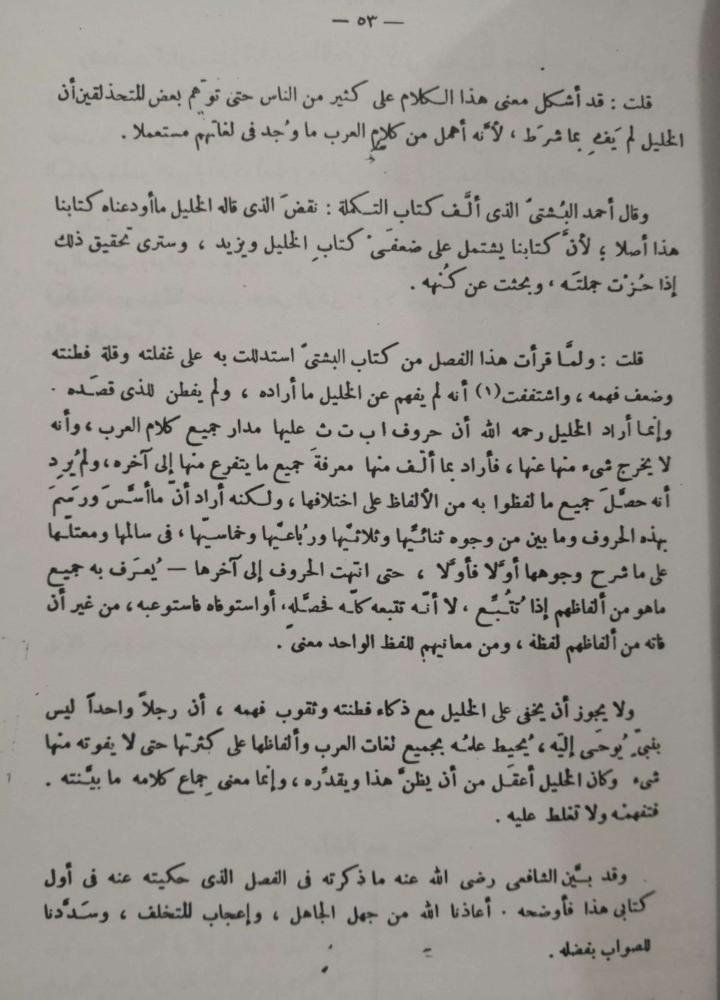 — ٥٣ —
قلت : قد أشكل معنى هذا الكلام على كثير من الناس حتى توهّم بعض المتحذلقين أن
الخليل لم يَفِ بما شرَط ، لأنّه أهمل من كلام العرب ما وُجد فى لغاتهم مستعملا .
وقال أحمد البُشتىّ الذى ألَّف كتاب التكملة : نقضَ الذى قاله الخليل ما أودعناه كتابنا
هذا أصلا ؛ لأنَّ كتابنا يشتمل على ضعفَىْ كتابِ الخليل ويزيد ، وسترى تحقيق ذلك
إذا حُزْت جملتَه ، وبحثت عن كُنهه .
قلت : ولمَّا قرأت هذا الفصل من كتاب البشتىّ استدللت به على غفلته وقلة فطنته
وضعف فهمه ، واشتففت(١) أنه لم يفهم عن الخليل ما أراده ، ولم يفطن للذى قصَده .
وإنما أراد الخليل رحمه الله أن حروف ا ب ت ث عليها مدار جميع كلام العرب ، وأنه
لا يخرج شىء منها عنها ، فأراد بما ألّف منها معرفةَ جميع ما يتفرع منها إلى آخره ، ولم يُرِد
أنه حصَّلَ جميع ما لفظوا به من الألفاظ على اختلافها ، ولكنه أراد أنّ ما أسَّسَ ورسَمَ
بهذه الحروف وما بين من وجوه ثنائيِّها وثلاثيّها ورُباعيِّها وخماسيّها ، فى سالمها ومعتلّها
على ما شرح وجوهها أوّلا فأوّلا ، حتى انتهت الحروف إلى آخرها — يُعرَف به جميع
ماهو من ألفاظهم إذا تُتُبِّع ، لا أنّه تتبعه كلّه فحصّله ، أو استوفاه فاستوعبه ، من غير أن
فاته من ألفاظهم لفظة ، ومن معانيهم للفظ الواحد معنىً .
ولا يجوز أن يخفى على الخليل مع ذكاء فطنته وثقوب فهمه ، أن رجلاً واحداً ليس
بنبىّ يُوحَى إليه ، يُحيط علمُه بجميع لغات العرب وألفاظها على كثرتها حتى لا يفوته منها
شىء وكان الخليل أعقَل من أن يظنَّ هذا ويقدِّره ، وإنما معنى جِماع كلامه ما بيَّنته .
فتفهمْه ولا تغلط عليه .
وقد بيَّن الشافعى رضى الله عنه ما ذكرته فى الفصل الذى حكيته عنه فى أول
كتابى هذا فأوضحه . أعاذنا الله من جهل الجاهل ، وإعجاب المتخلف ، وسَدَّدنا
للصواب بفضله .